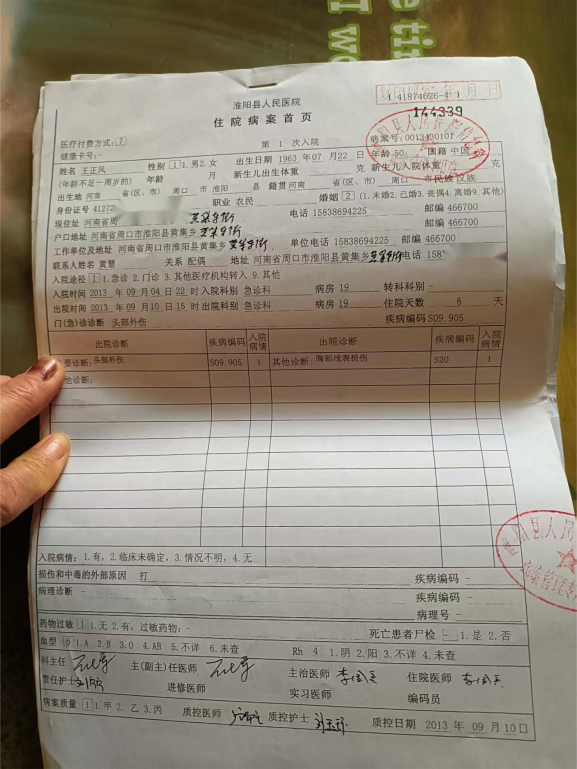 淮阳县人民医院
(41874626-4)
住院病案首页
144339
医疗付费方式:7 第 1 次入院 病案号: 001343010
健康卡号:-
姓名 王正风 性别 1 1.男2.女 出生日期 1963 年 07 月 22 日 年龄 50 国籍 中国
(年龄不足一周岁的) 年龄 月 新生儿出生体重 克 新生儿入院体重 克
出生地 河南 省(区、市) 周口 市 淮阳 县 籍贯 河南 省(区、市) 周口 市 民族 汉族
身份证号 41272 职业 农民 婚姻 2 (1.未婚2.已婚3.丧偶4.离婚9.其他)
现住址 河南省周 电话 15838694225 邮编 466700
户口地址 河南省周口市淮阳县黄集乡 邮编 466700
工作单位及地址 河南省周口市淮阳县黄集乡 单位电话 15838694225 邮编 466700
联系人姓名 黄慧 关系 配偶 地址 河南省周口市淮阳县黄集乡 电话 158
入院途径 1 1.急诊 2.门诊 3.其他医疗机构转入 9.其他
入院时间 2013 年 09 月 04 日 22 时 入院科别 急诊科 病房 19 转科科别 -
出院时间 2013 年 09 月 10 日 15 时 出院科别 急诊科 病房 19 住院天数 6 天
门(急)诊诊断 头部外伤 疾病编码 S09.905
出院诊断 疾病编码 入院病情 出院诊断 疾病编码 入院病情
要诊断: 头部外伤 S09.905 1 其他诊断: 胸部浅表损伤 S20 1
他诊断:
入院病情: 1.有, 2.临床未确定, 3.情况不明, 4.无
损伤和中毒的外部原因 打 疾病编码 -
病理诊断 - 疾病编码 -
病理号 -
药物过敏 1 1.无 2.有, 过敏药物:- 死亡患者尸检 - 1.是 2.否
血型 6 1.A 2.B 3.O 4.AB 5.不详 6.未查 Rh 4 1.阴 2.阳 3.不详 4.未查
科主任 主(副主)任医师 主治医师 住院医师
责任护士 进修医师 实习医师 编码员
病案质量 1 1.甲 2.乙 3.丙 质控医师 质控护士 质控日期 2013 年 09 月 10 日